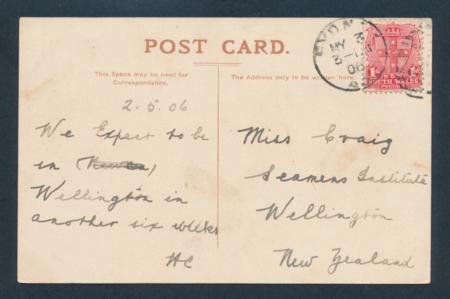 POST CARD.
This Space may be used for
Correspondence.
The Address only to be written here.
SYDNEY
MY 3
06
2.5.06
We Expect to be
in
Wellington in
another six weeks
HC
Miss Craig
Seamens Institute
Wellington
New Zealand